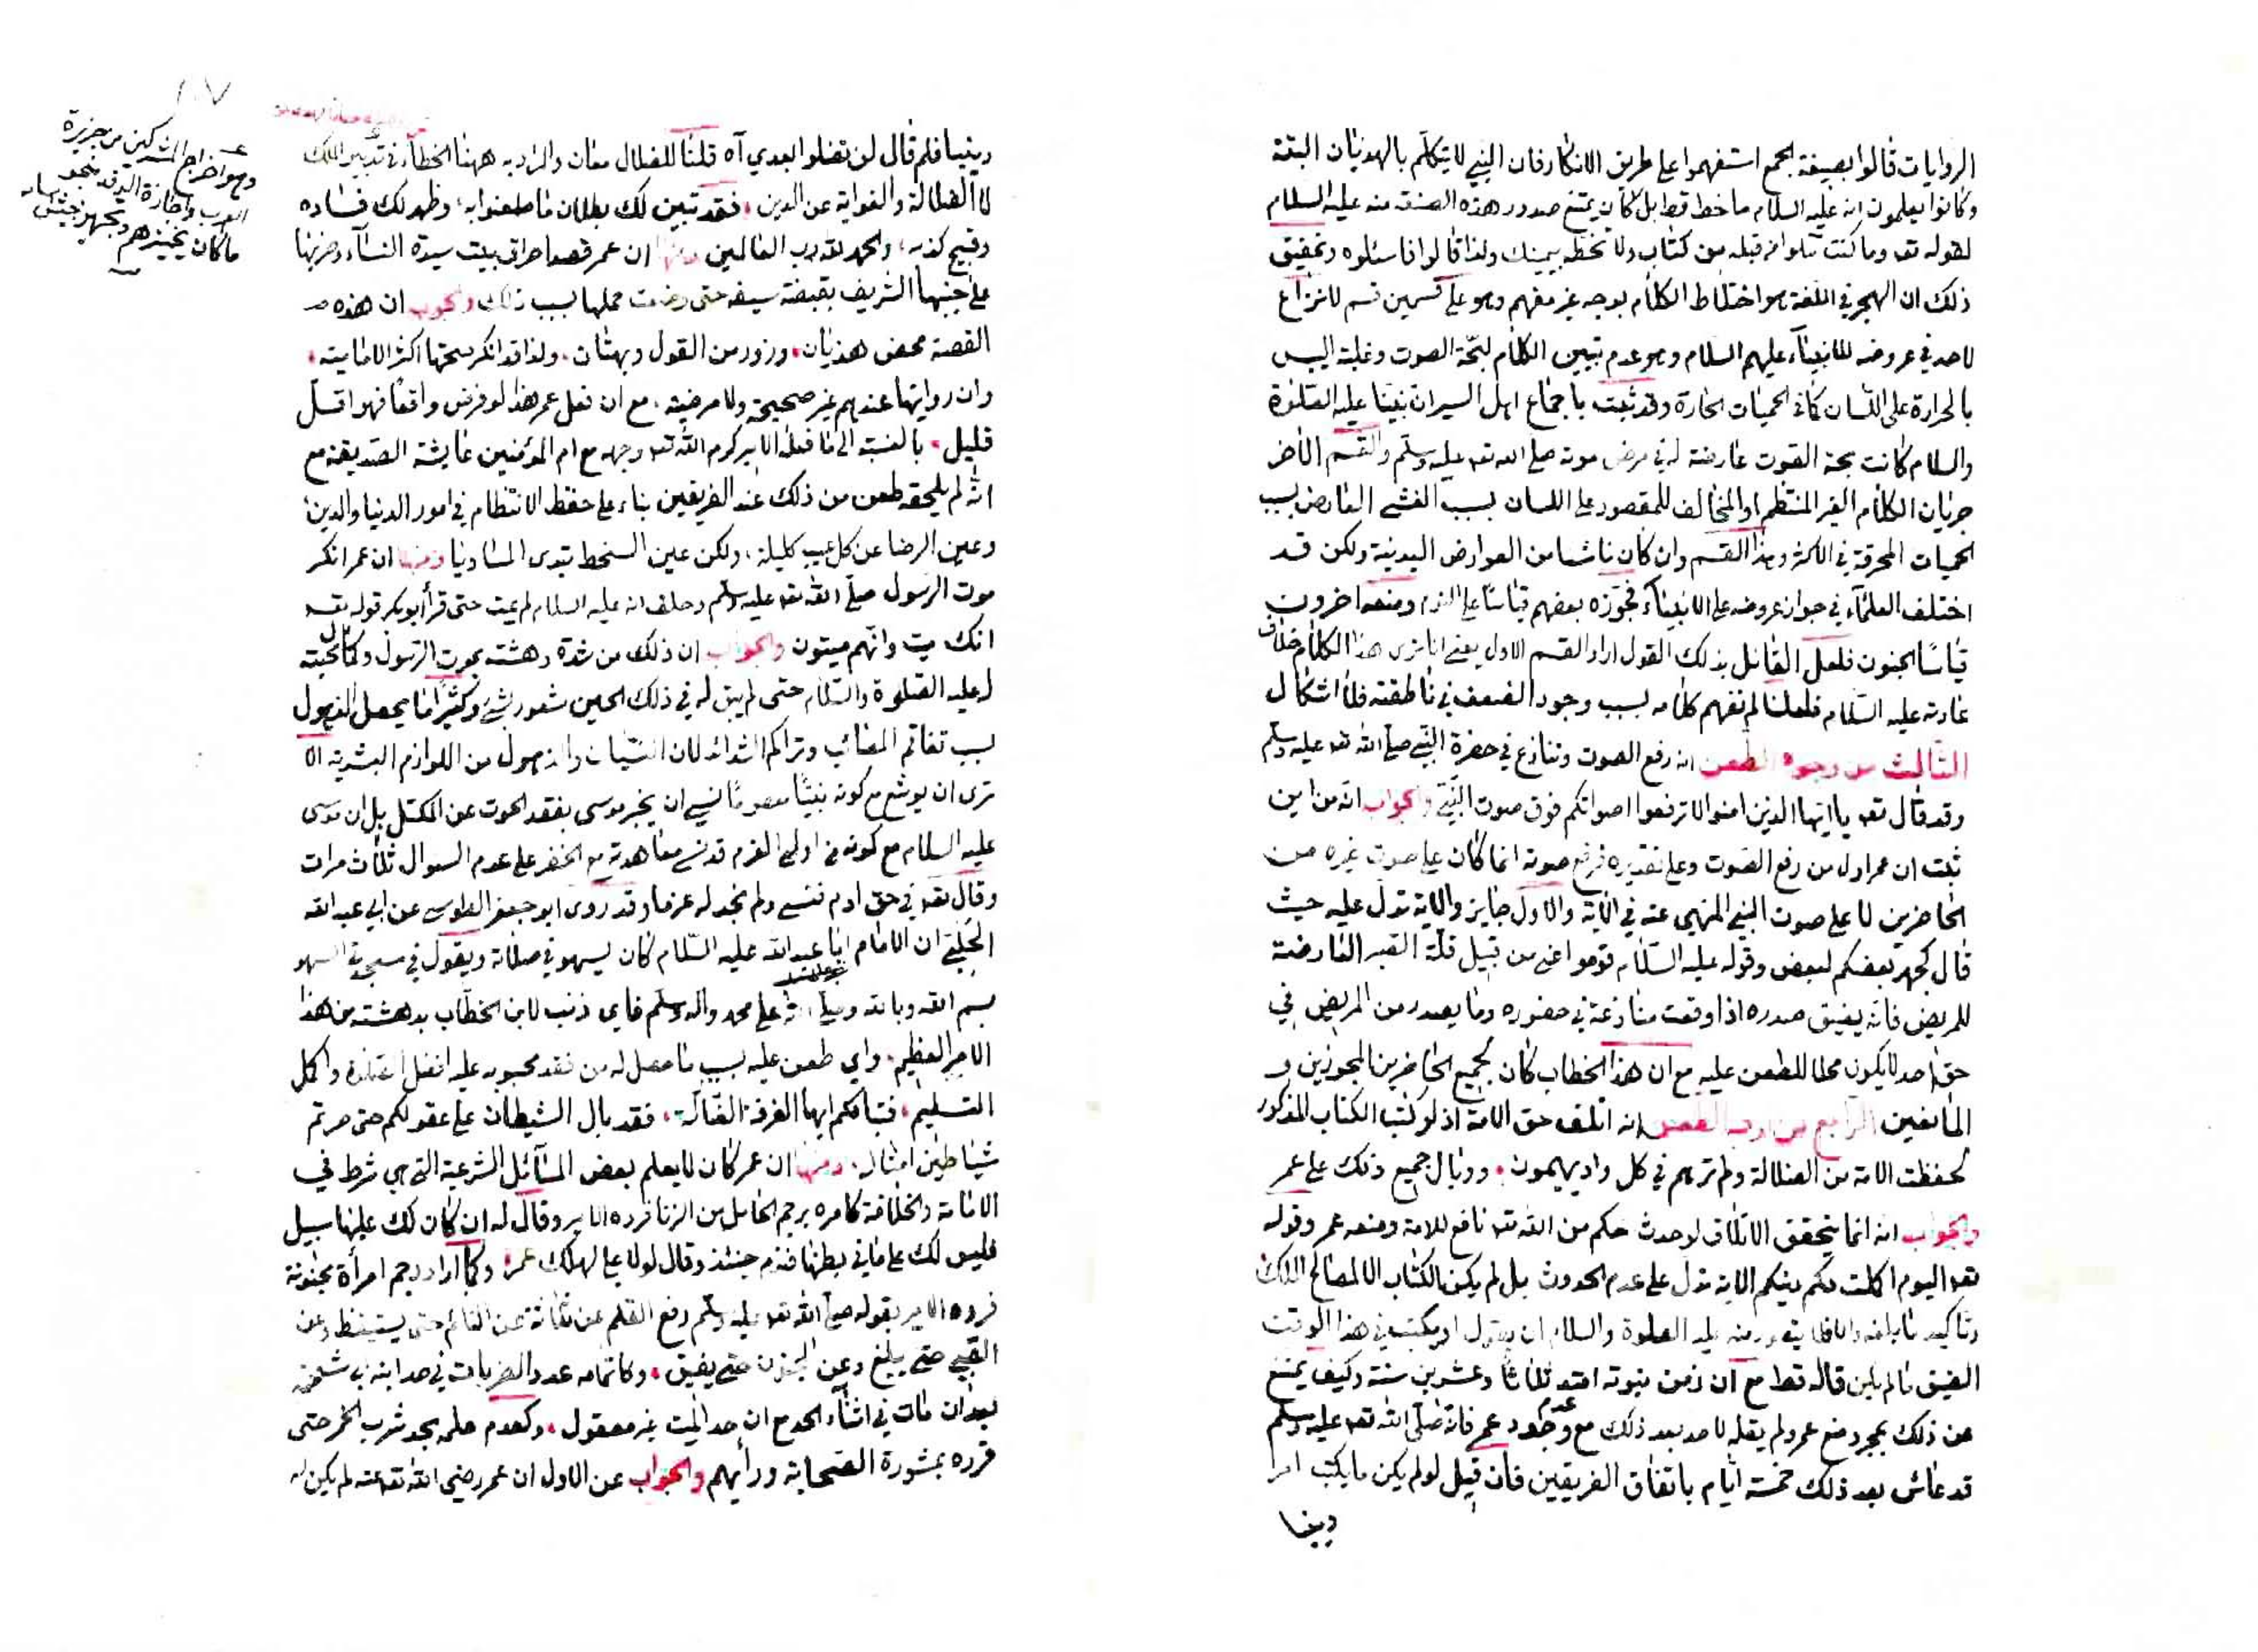 الروايات قالوا بصيغة الجمع استفهموا على طريق الانكار فان النبي لا يتكلم بالهذيان البتة
وكانوا يعلمون انه عليه السلام ما خط قط بل كان يمتنع صدور هذه الصنعة منه عليه السلام
لقوله تعـ وما كنت تتلوا من قبله من كتاب ولا تخطه بيمينك ولذا قالوا فاسئلوه وتحقيق
ذلك ان الهجر في اللغة هو اختلاط الكلام بوجه غير مفهم وهو على قسمين قسم لا نزاع
لاحد في عروضه للانبياء عليهم السلام وهو عدم تبيين الكلام لبحّة الصوت وغلبة اليبس
بالحرارة على اللسان كما في الحميات الحارة وقد ثبت باجماع اهل السير ان نبينا عليه الصلوة
والسلام كانت بحة الصوت عارضة له في مرض موته صلى الله تعـ عليه وسلم والقسم الآخر
جريان الكلام الغير المنتظم او المخالف للمقصود على اللسان بسبب الغشي العارض بسبب
الحميات المحرقة في الاكثر وهذا القسم وان كان ناشئا من العوارض البدنية ولكن قد
اختلف العلماء في جواز عروضه على الانبياء فجوّزه بعضهم قياسًا على النوم ومنعه اخرون
قياسًا الجنون فلعل القائل بذلك القول اراد القسم الاول يعني انا نرى هذا الكلام خلاف
عادته عليه السلام فلعلنا لم نفهم كلامه بسبب وجود الضعف في ناطقته فلا اشكال
الثالث من وجوه الطعن انه رفع الصوت وتنازع في حضرة النبي صلى الله تعـ عليه وسلم
وقد قال تعـ يا ايها الذين امنوا لا ترفعوا اصواتكم فوق صوت النبي والجواب انه من اين
ثبت ان عمر اول من رفع الصوت وعلى تقديره فرفع صوته انما كان على صوت غيره من
الحاضرين لا على صوت النبي المنهي عنه في الآية والاول جايز والآية تدل عليه حيث
قال كجهر بعضكم لبعض وقوله عليه السلام قوموا عني من قبيل قلة الصبر العارضة
للمريض فانه يضيق صدره اذا وقعت منازعة في حضوره وما يصدر من المريض في
حق احد لا يكون محلا للطعن عليه مع ان هذا الخطاب كان لجميع الحاضرين المجوزين و
المانعين الرابع من اوجه الطعن انه اتلف حق الامة اذ لو كتب الكتاب المذكور
لحفظت الامة من الضلالة ولم ترهم في كل واد يهيمون ووبال جميع ذلك على عمر
والجواب انه انما يتحقق الاتلاف لو حدث حكم من الله تعـ نافع للامة ومنعه عمر وقوله
تعـ اليوم اكملت لكم دينكم الاية تدل على عدم الحدوث بل لم يكن الكتاب الا لمصالح الملك
وتاكيد ما بلغه والا فلا يتصور منه عليه الصلوة والسلام ان يقول او يكتب في هذا الوقت
الضيق ما لم يكن قاله قط مع ان زمن نبوته امتد ثلاثا وعشرين سنة وكيف يمتنع
عن ذلك بمجرد منع عمر ولم يقله لاحد بعد ذلك مع عدم وجود عمر فانه صلى الله تعـ عليه وسلم
قد عاش بعد ذلك خمسة ايام باتفاق الفريقين فان قيل لو لم يكن ما يكتب امرا
دينيا
دينيا فلم قال لن تضلوا بعدي آه قلنا للضلال معان والمراد به ههنا الخطأ في تدبير الملك
لا الضلالة والغواية عن الدين فقد تبين لك بطلان ما طعنوا به وظهر لك فساده
وقبيح كذبه والحمد لله رب العالمين ومنها ان عمر قصد احراق بيت سيدة النساء وضربها
على جنبها الشريف بقبضة سيفه حتى وضعت حملها بسبب ذلك والجواب ان هذه
القصة محض هذيان وزور من القول وبهتان ولذا قد انكر صحتها اكثر الامامية
وان روايتها عندهم غير صحيحة ولا مرضية مع ان فعل عمر هذا لو فرض واقعًا فهو اقل
قليل بالنسبة الى ما فعله الامير كرم الله تعـ وجهه مع ام المؤمنين عايشة الصديقة مع
انه لم يلحقه طعن من ذلك عند الفريقين بناء على حفظ الانتظام في امور الدنيا والدين
وعين الرضا عن كل عيب كليلة ولكن عين السخط تبدى المساويا ومنها ان عمر انكر
موت الرسول صلى الله تعـ عليه وسلم وحلف انه عليه السلام لم يمت حتى قرأ ابو بكر قوله تعـ
انك ميت وانهم ميتون والجواب ان ذلك من شدة دهشته بموت الرسول وكمال محبته
له عليه الصلوة والسلام حتى لم يبق له في ذلك الحين شعور بشئ وكثيرًا ما يحصل الذهول
بسبب تفاقم المصائب وتراكم الشدائد لان النسيان والذهول من اللوازم البشرية الا
ترى ان يوشع مع كونه نبيًا معصومًا نسي ان يخبر موسى بفقد الحوت عن المكتل بل ان موسى
عليه السلام مع كونه من اولي العزم قد نسي معاهدته مع الخضر على عدم السوال ثلاث مرات
وقال تعـ في حق ادم فنسي ولم نجد له عزما وقد روى ابو جعفر الطوسي عن ابي عبد الله
الحلبي ان الامام ابا عبد الله عليه السلام كان يسهو في صلاته ويقول في سجدتي السهو
بسم الله وبالله وصلى الله على محمد واله وسلم فاي ذنب لابن الخطاب بدهشته من هذا
الامر العظيم واي طعن عليه بسبب ما حصل له من فقد محبوبه عليه افضل الصلوة واكمل
التسليم فتبا لكم ايها الفرقة الضالة فقد بال الشيطان على عقولكم حتى صرتم
شياطين امثاله ومنها ان عمر كان لا يعلم بعض المسائل الشرعية التي هي شرط في
الامامة والخلافة كامره برجم الحامل من الزنا فرده الامير وقال له ان كان لك عليها سبيل
فليس لك على ما في بطنها فندم حينئذ وقال لولا علي لهلك عمر وكما اراد رجم امرأة مجنونة
فرده الامير بقوله صلى الله تعـ عليه وسلم رفع القلم عن ثلاثة عن النائم حتى يستيقظ وعن
الصبي حتى يبلغ وعن المجنون حتى يفيق وكاتمامه عدد الضربات في حد ابنه ابي شحمة
بعد ان مات في اثناء الحد مع ان حد الميت غير معقول وكعدم علمه بحد شرب الخمر حتى
قرره بمشورة الصحابة ورأيهم والجواب عن الاول ان عمر رضي الله تعـ عنه لم يكن له
١٠٧
وهو اخراج المشركين من جزيرة
العرب واجازة الوفد بنحو
ما كان يجيزهم وتجهيز جيش اسامه